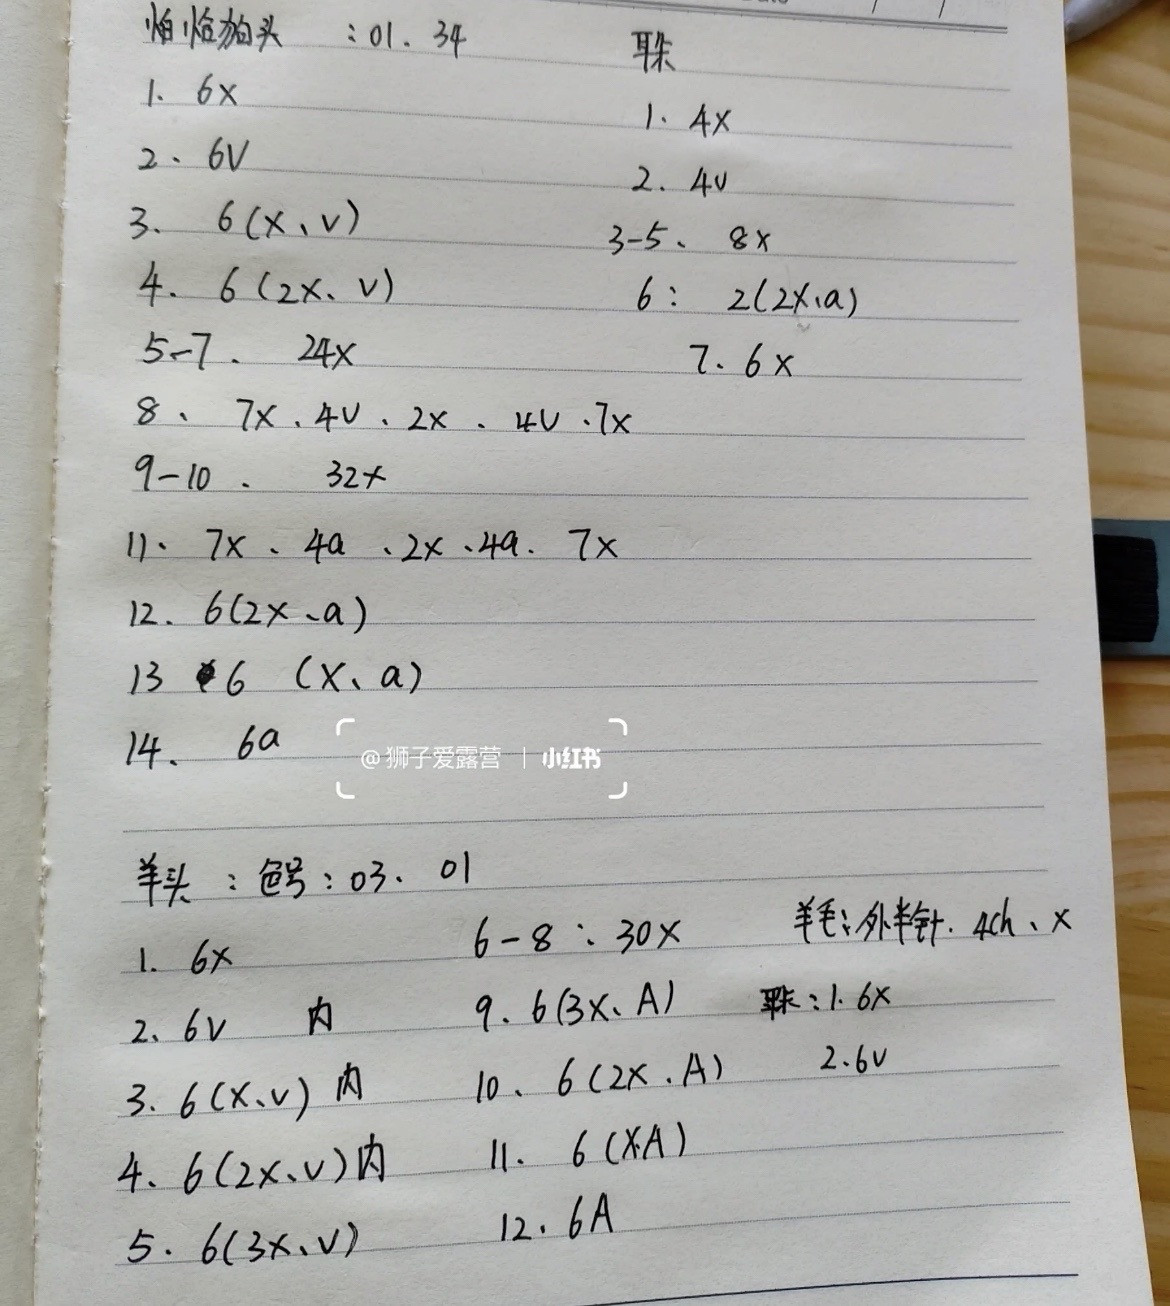 恰恰狗头 : 01. 34
1. 6x
2. 6V
3. 6(x、v)
4. 6(2x、v)
5-7. 24x
8、 7x、4v、2x、4v、7x
9-10. 32x
11、 7x、4a、2x、4a、7x
12. 6(2x、a)
13 6 (x、a)
14、 6a
耳朵
1. 4x
2. 4v
3-5、 8x
6: 2(2x、a)
7. 6x
@狮子爱露营 | 小红书
羊头 : 色号 : 03. 01
1. 6x
2、6v 内
3. 6(x、v) 内
4. 6(2x、v) 内
5. 6(3x、v)
6-8 : 30x
9. 6(3x、A)
10、 6(2x、A)
11. 6(x.A)
12. 6A
羊毛:外半针. 4ch、x
耳朵:1. 6x
2. 6v